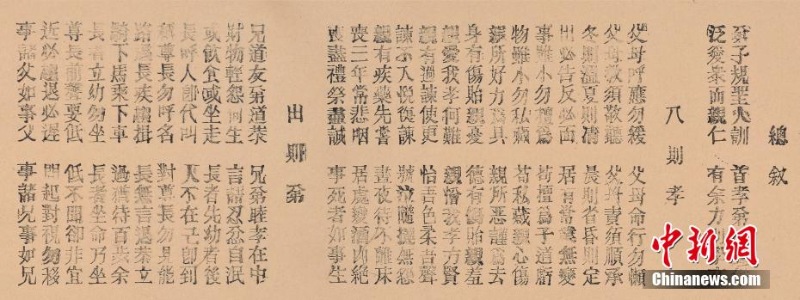 總叙
弟子規聖人訓 首孝弟
汎愛衆而親仁 有余力
入則孝
父母呼應勿緩 父母命行勿懶
父母教須敬聽 父母責須順承
冬則溫夏則凊 晨則省昏則定
出必告反必面 居有常業無變
事雖小勿擅為 苟擅為子道虧
物雖小勿私藏 苟私藏親心傷
親所好力為具 親所惡謹為去
身有傷貽親憂 德有傷貽親羞
親愛我孝何難 親憎我孝方賢
親有過諫使更 怡吾色柔吾聲
諫不入悅復諫 號泣隨撻無怨
親有疾藥先嘗 晝夜侍不離床
喪三年常悲咽 居處變酒肉絕
喪盡禮祭盡誠 事死者如事生
出則弟
兄道友弟道恭 兄弟睦孝在中
財物輕怨何生 言語忍忿自泯
或飲食或坐走 長者先幼者後
長呼人即代叫 人不在己即到
稱尊長勿呼名 對尊長勿見能
路遇長疾趨揖 長無言退恭立
騎下馬乘下車 過猶待百步余
長者立幼勿坐 長者坐命乃坐
尊長前聲要低 低不聞卻非宜
近必趨退必遲 問起對視勿移
事諸父如事父 事諸兄如事兄
中新網
Chinanews.com